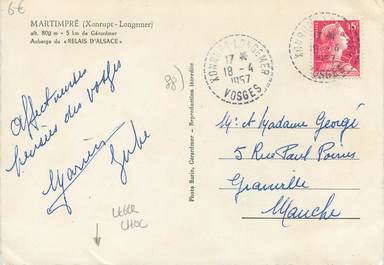 6€
MARTIMPRÉ (Xonrupt - Longemer)
alt. 800 m - 5 km de Gérardmer
Auberge du «RELAIS D'ALSACE»
88)
Affectueuses
pensées des vosges
LEGER
CHOC
Photo Barin, Gérardmer - Reproduction interdite
XONRUPT-LONGEMER
17 *
18 - 4
1957
VOSGES
15F
M. et Madame George
5 Rue Paul Poirier
Granville
Manche